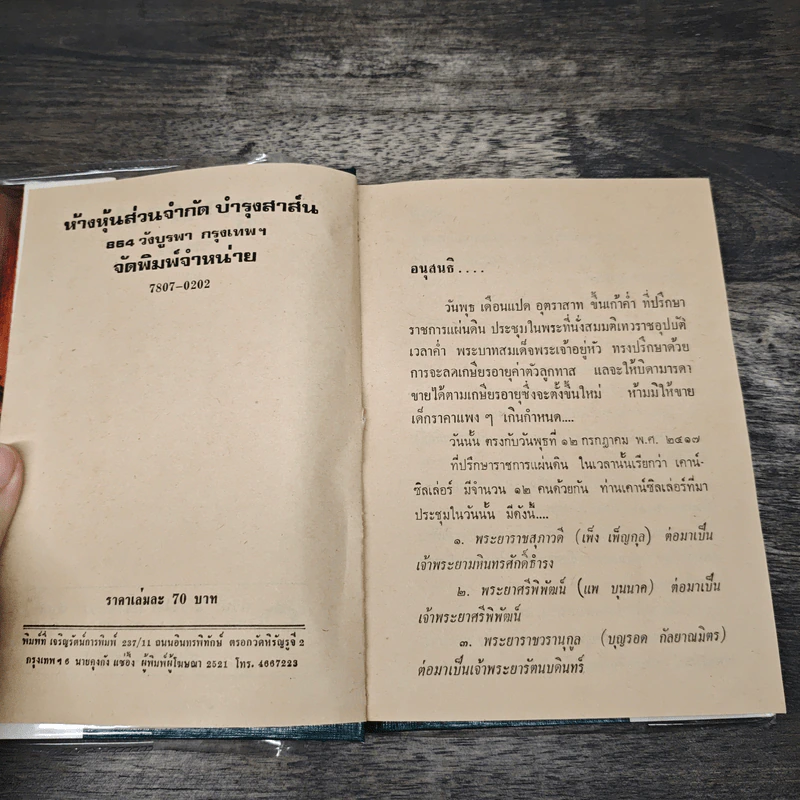 ห้างหุ้นส่วนจำกัด บำรุงสาส์น
๘๘๔ วังบูรพา กรุงเทพฯ
จัดพิมพ์จำหน่าย
7807-0202
ราคาเล่มละ 70 บาท
พิมพ์ที่ เจริญรัตน์การพิมพ์ 237/11 ถนนอินทรพิทักษ์ ตรอกวัดหิรัญรูจี 2
กรุงเทพฯ 6 นายคุงกัง แซ่อึ้ง ผู้พิมพ์ผู้โฆษณา 2521 โทร. 4667223
อนุสนธิ....
วันพุธ เดือนแปด อุตราสาท ขึ้นเก้าค่ำ ที่ปรึกษา
ราชการแผ่นดิน ประชุมในพระที่นั่งสมมติเทวราชอุปบัติ
เวลาค่ำ พระบาทสมเด็จพระเจ้าอยู่หัว ทรงปรึกษาด้วย
การจะลดเกษียรอายุค่าตัวลูกทาส แลจะให้บิดามารดา
ขายได้ตามเกษียรอายุซึ่งจะตั้งขึ้นใหม่ ห้ามมิให้ขาย
เด็กราคาแพง ๆ เกินกำหนด....
วันนั้น ตรงกับวันพุธที่ ๑๒ กรกฎาคม พ.ศ. ๒๔๑๗
ที่ปรึกษาราชการแผ่นดิน ในเวลานั้นเรียกว่า เคาน์-
ซิลเล่อร์ มีจำนวน ๑๒ คนด้วยกัน ท่านเคาน์ซิลเล่อร์ที่มา
ประชุมในวันนั้น มีดังนี้....
๑. พระยาราชสุภาวดี (เพ็ง เพ็ญกุล) ต่อมาเป็น
เจ้าพระยามหินทรศักดิ์ธำรง
๒. พระยาศรีพิพัฒน์ (แพ บุนนาค) ต่อมาเป็น
เจ้าพระยาศรีพิพัฒน์
๓. พระยาราชวรานุกูล (บุญรอด กัลยาณมิตร)
ต่อมาเป็นเจ้าพระยารัตนบดินทร์